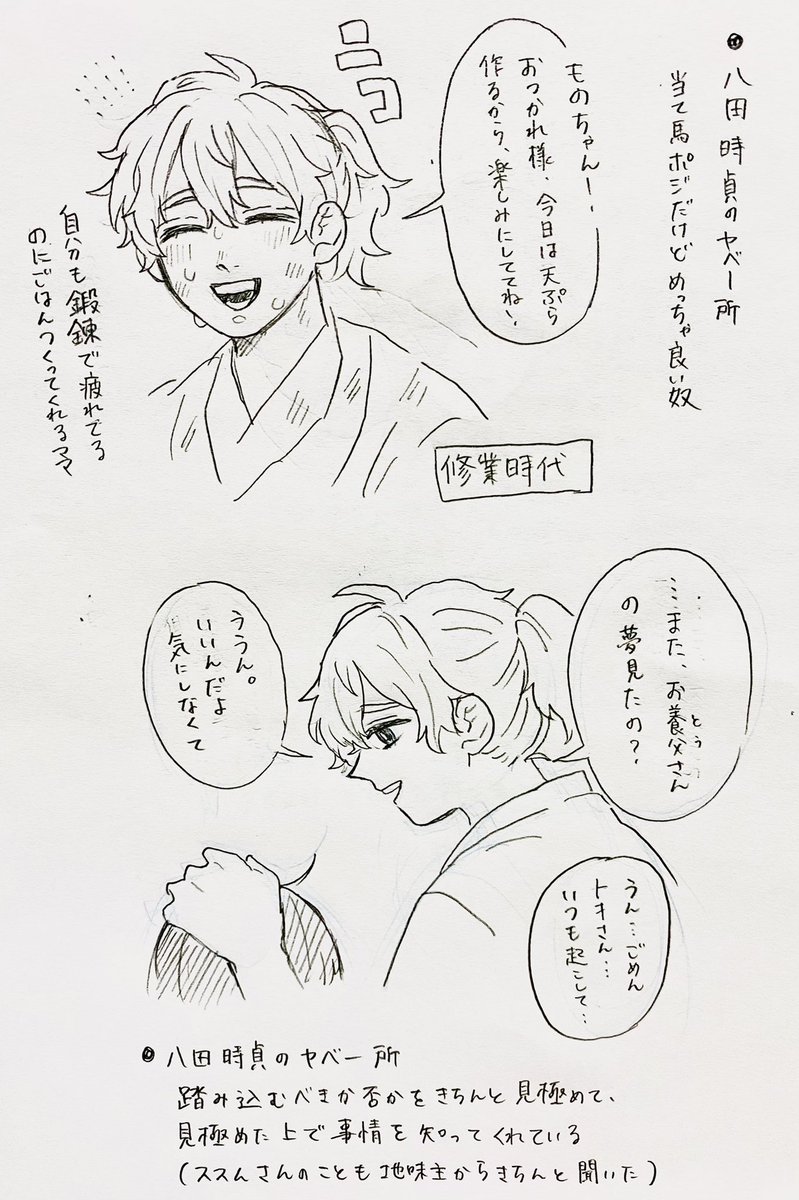 ● 八田時貞のヤベー所
当て馬ポジだけどめっちゃ良い奴
ものちゃんー、
おつかれ様、今日は天ぷら
作るから、楽しみにしててね!、
ニコ
自分も鍛錬で疲れてる
のにごはんつくってくれるママ
修業時代
…また、お養父さん
とう
の夢見たの?
ううん。
いいんだよ
気にしなくて
うん…ごめん
トキさん…
いつも起こして…
● 八田時貞のヤベー所
踏み込むべきか否かをきちんと見極めて、
見極めた上で事情を知ってくれている
(ススムさんのことも地味主からきちんと聞いた)